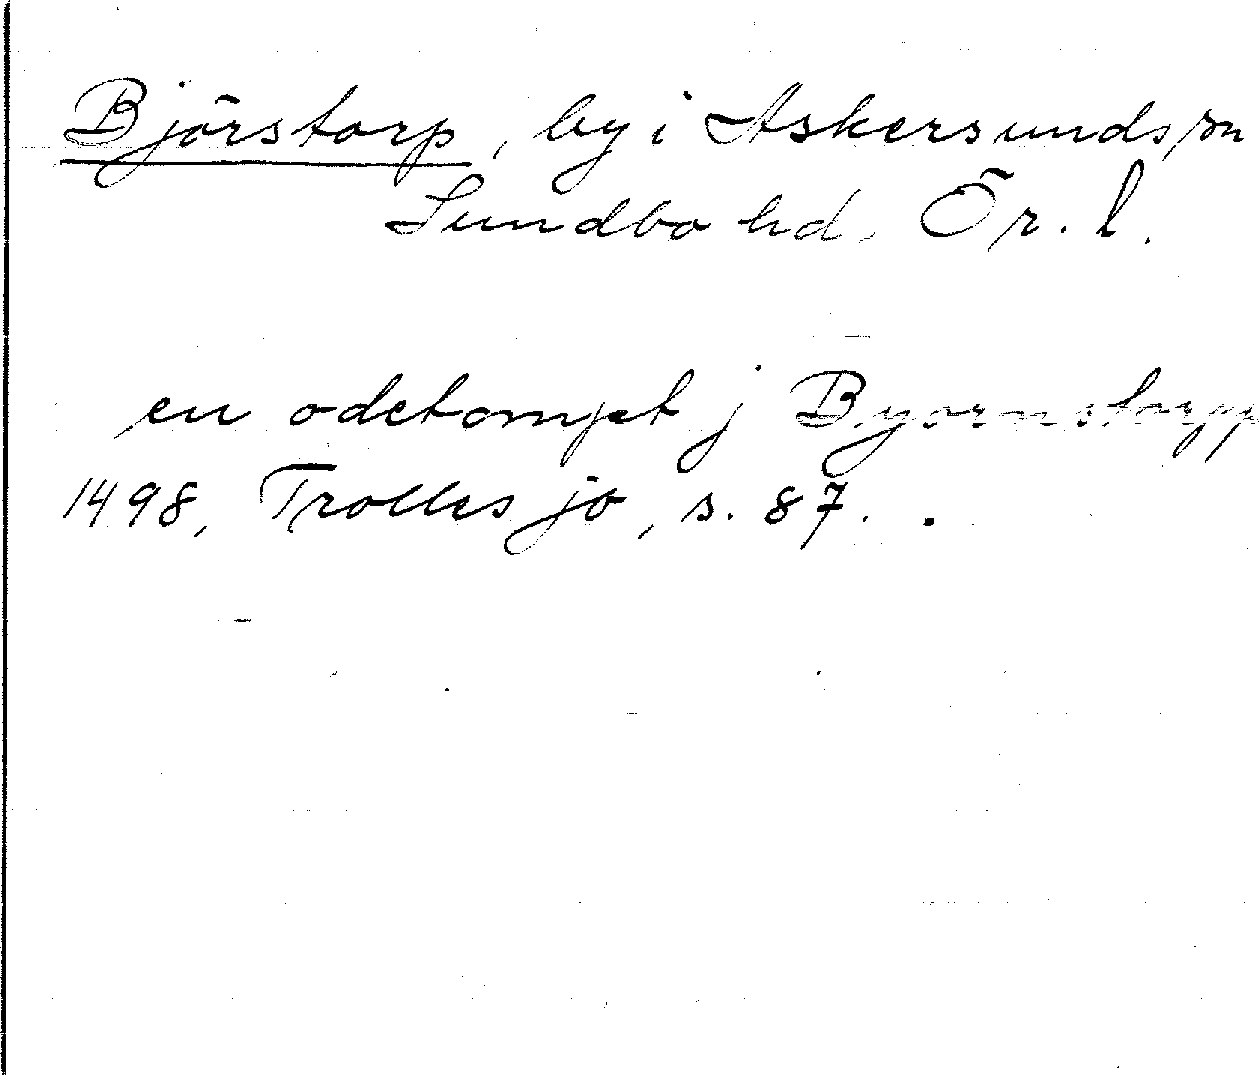 Björstorp, by i Askersunds sn
Sundbo hd. Ör. l.
en odetompt j Byornstorpp
1498, Trolles jb, s. 87.